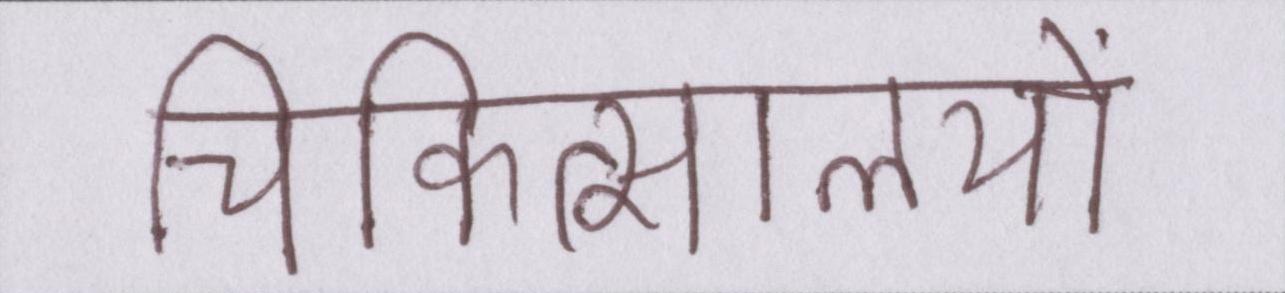 चिकित्सालयों